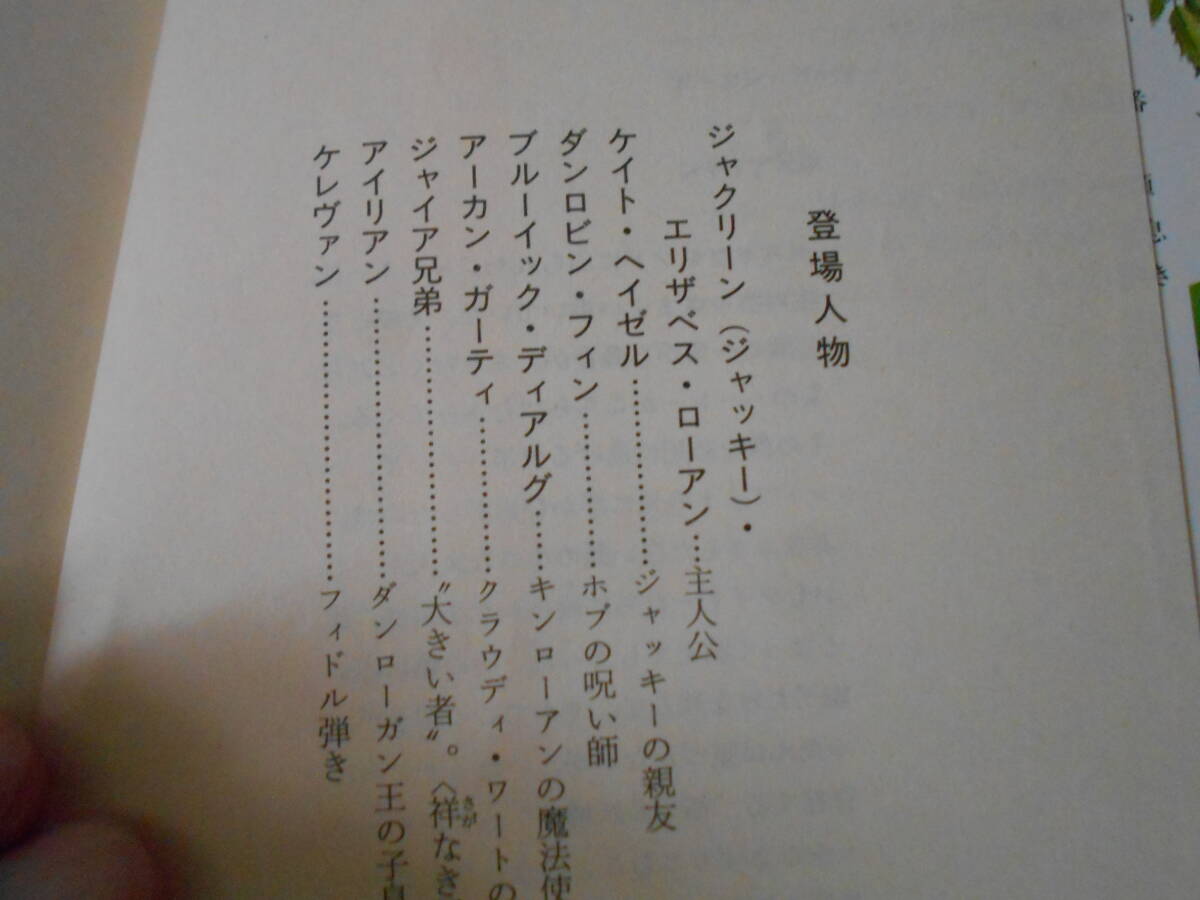 登場人物
ジャクリーン（ジャッキー）・
エリザベス・ローアン…主人公
ケイト・ヘイゼル……………………ジャッキーの親友
ダンロビン・フィン………………ホブの呪い師
ブルーイック・ディアルグ……キンローアンの魔法使
アーカン・ガーティ………………クラウディ・ワートの
ジャイア兄弟…………………………〝大きい者〟。〈祥なき
さが
アイリアン……………………………ダンローガン王の子息
ケレヴァン……………………………フィドル弾き